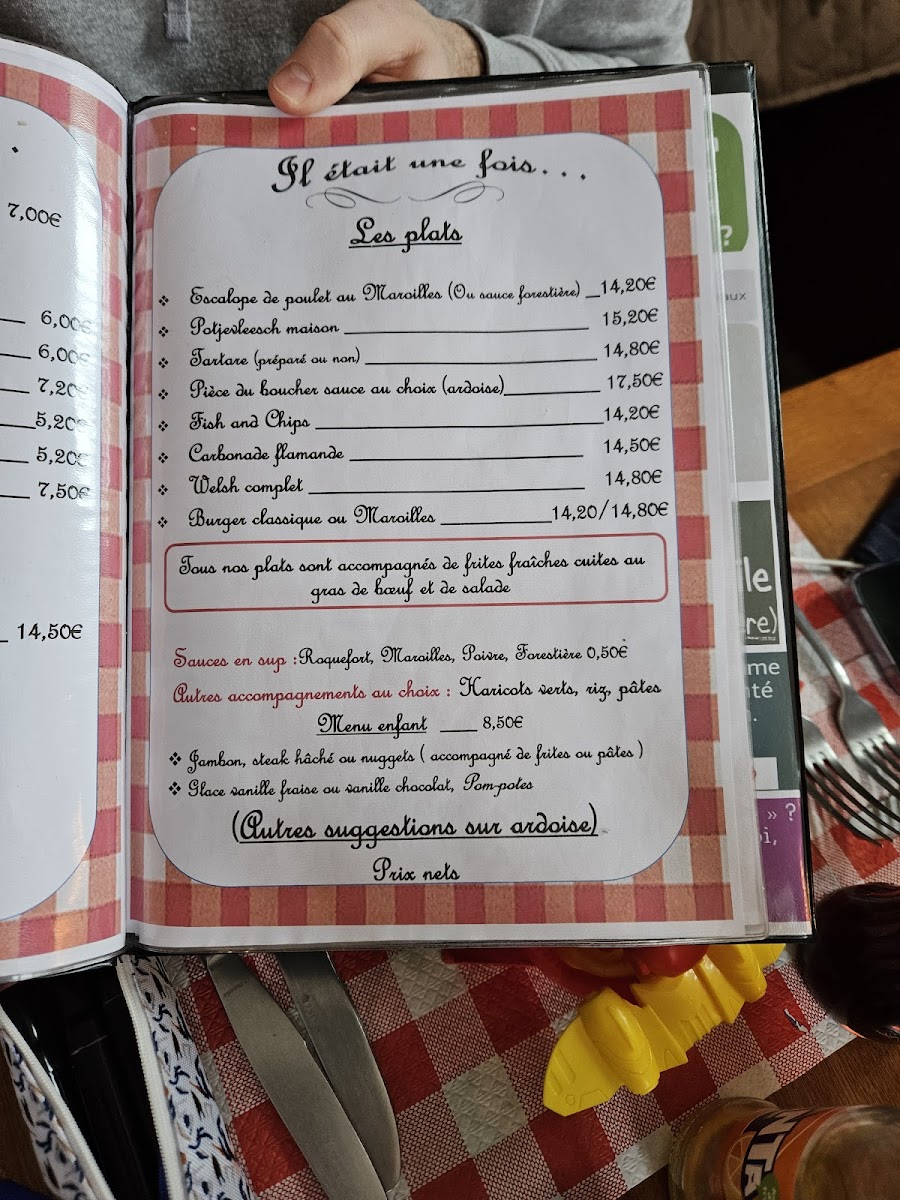 7,00€
6,00€
6,00€
7,20€
5,20€
5,20€
7,50€
14,50€
Il était une fois...
Les plats
❖ Escalope de poulet au Maroilles (Ou sauce forestière) __14,20€
❖ Potjevleesch maison 15,20€
❖ Tartare (préparé ou non) 14,80€
❖ Pièce du boucher sauce au choix (ardoise) 17,50€
❖ Fish and Chips 14,20€
❖ Carbonade flamande 14,50€
❖ Welsh complet 14,80€
❖ Burger classique ou Maroilles 14,20/14,80€
Tous nos plats sont accompagnés de frites fraîches cuites au
gras de bœuf et de salade
Sauces en sup :Roquefort, Maroilles, Poivre, Forestière 0,50€
Autres accompagnements au choix : Haricots verts, riz, pâtes
Menu enfant ____ 8,50€
❖ Jambon, steak hâché ou nuggets ( accompagné de frites ou pâtes )
❖ Glace vanille fraise ou vanille chocolat, Pom-potes
(Autres suggestions sur ardoise)
Prix nets
?
aux
le
re)
me
té
» ?
oi,
NTA